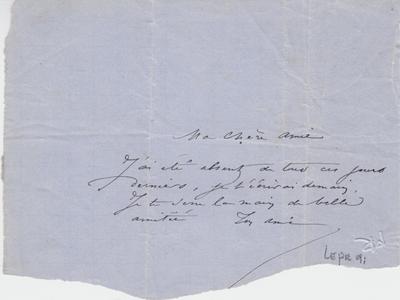 Ma chère amie
J'ai été absent de tous ces jours
derniers, je t'écrirai demain,
Je te serre la main de belle
amitié Ton ami
LEPR 9;